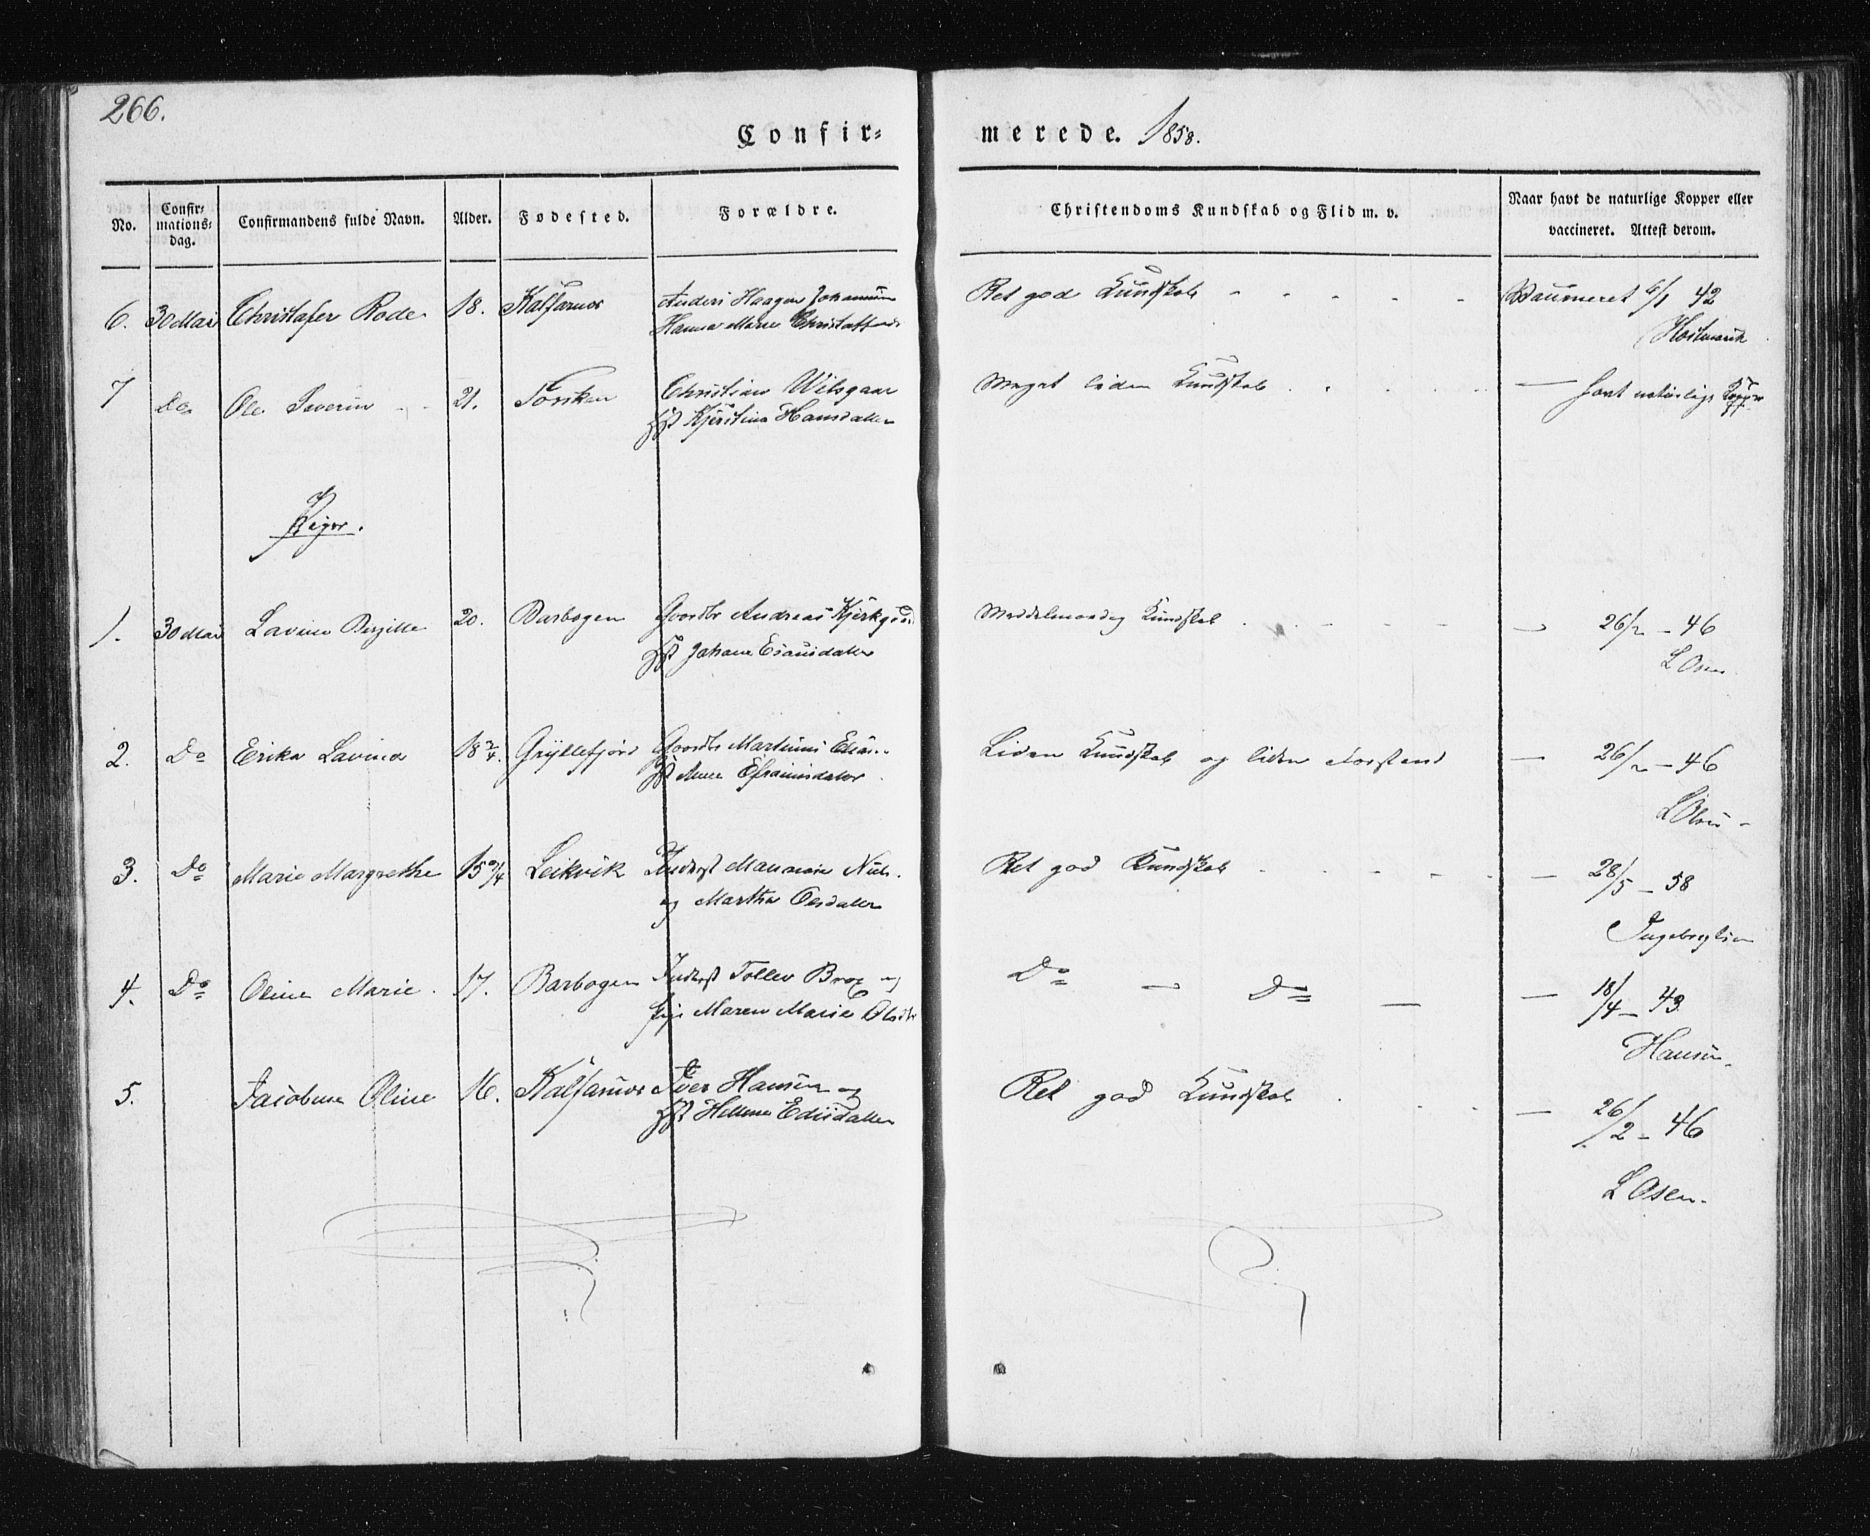 266.
Confir- merede. 1858.
No. Confir-mations-dag. Confirmandens fulde Navn. Alder. Fødested. Forældre. Christendoms Kundskab og Flid m. v. Naar havt de naturlige Kopper eller vaccineret. Attest derom.
6. 30 Mai Christofer Rode 18. Kalfarnes Anders Haagen Johannsen Ret god Kundskab - - - - - Vaccineret 6/1 42
Hanna Marie
7 Do Ole Severin 21. Torsken Christian Wilsgaar Meget liden Kundskab — havt naturlige Kopper
Kjerstina Hansdatter
Piger.
1. 30 Mai Lavine Bergitte 20. Barbogen Andreas Maadelmaadig Kundskab — 26/2 - 46
Johane Esausdatter L Osen
2. Do Erika Lavina 18 2/4. Gryllefjord Martinus Liden Kundskab og liden Forstand — 26/2 - 46
Anne Efraimsdatter L Olsen
3. Do Marie Margrethe 15 3/4 Leikvik Inderst Ret god Kundskab — 28/5 - 58
og Martha Olsdatter Ingebregtsen
4. Do Oline Marie. 17. Barbogen Inderst Tollev Brox og Do — Do — — 18/4 - 43
Pige Maren Marie Hansen.
5. Jacobine Oline 16. Kalfarnes Iver Hansen og Ret god Kundskab — 26/2 - 46
Hellene L Osen.